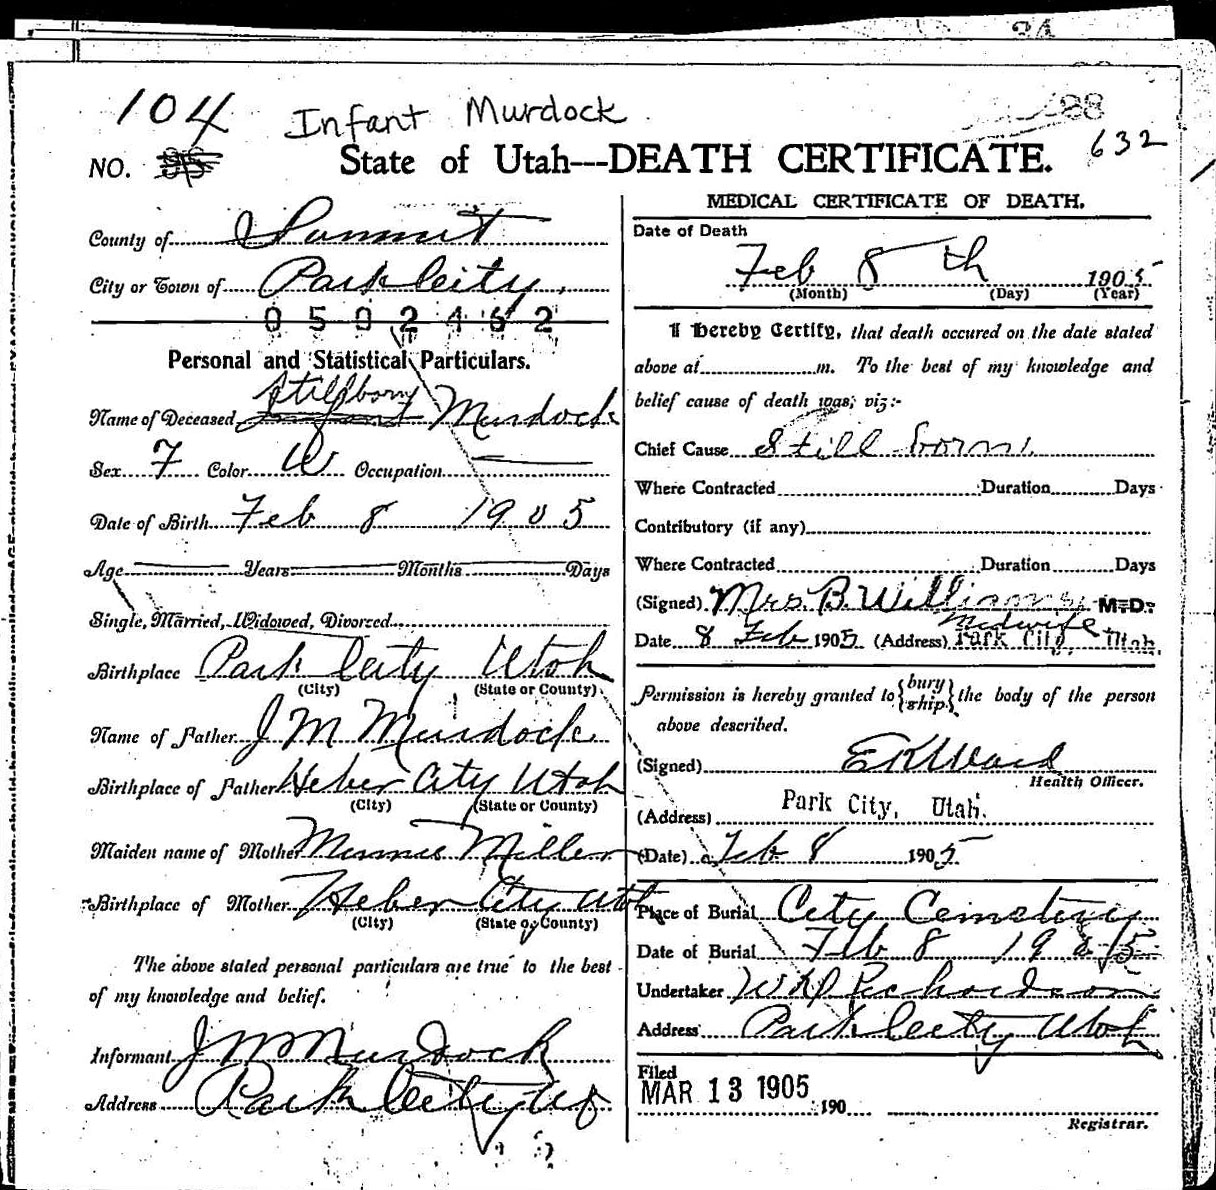 104 Infant Murdock
88
632
NO.
State of Utah---DEATH CERTIFICATE.
County of Summit
City or Town of Park City,
0502462
Personal and Statistical Particulars.
Stillborn
Name of Deceased Infant Murdock
Sex F Color W Occupation
Date of Birth Feb 8 1905
Age Years Months Days
Single, Married, Widowed, Divorced
Birthplace Park City Utah
(City) (State or County)
Name of Father J M Murdock
Birthplace of Father Heber City Utah
(City) (State or County)
Maiden name of Mother Minnie Miller
Birthplace of Mother Heber City Utah
(City) (State or County)
The above stated personal particulars are true to the best
of my knowledge and belief.
Informant J M Murdock
Address Park City Ut
MEDICAL CERTIFICATE OF DEATH.
Date of Death
Feb 8th 1905
(Month) (Day) (Year)
I Hereby Certify, that death occured on the date stated
above at m. To the best of my knowledge and
belief cause of death was; viz:-
Chief Cause Still born
Where Contracted Duration Days
Contributory (if any)
Where Contracted Duration Days
(Signed) Mrs. B. Williams M.D.
Midwife
Date 8 Feb 1905 (Address) Park City, Utah.
Permission is hereby granted to {bury ship} the body of the person
above described.
(Signed) E K Ward
Health Officer.
(Address) Park City, Utah.
(Date) Feb 8 1905
Place of Burial City Cemetery
Date of Burial Feb 8 1905
Undertaker W D Richardson
Address Park City Utah
Filed
MAR 13 1905
190
Registrar.